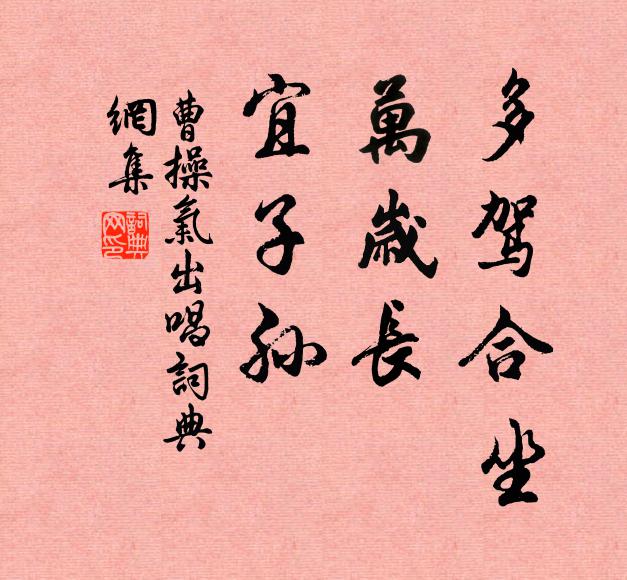 多駕合坐
萬歲長
宜子孫
曹操氣出唱詞典
網集
詞典網印